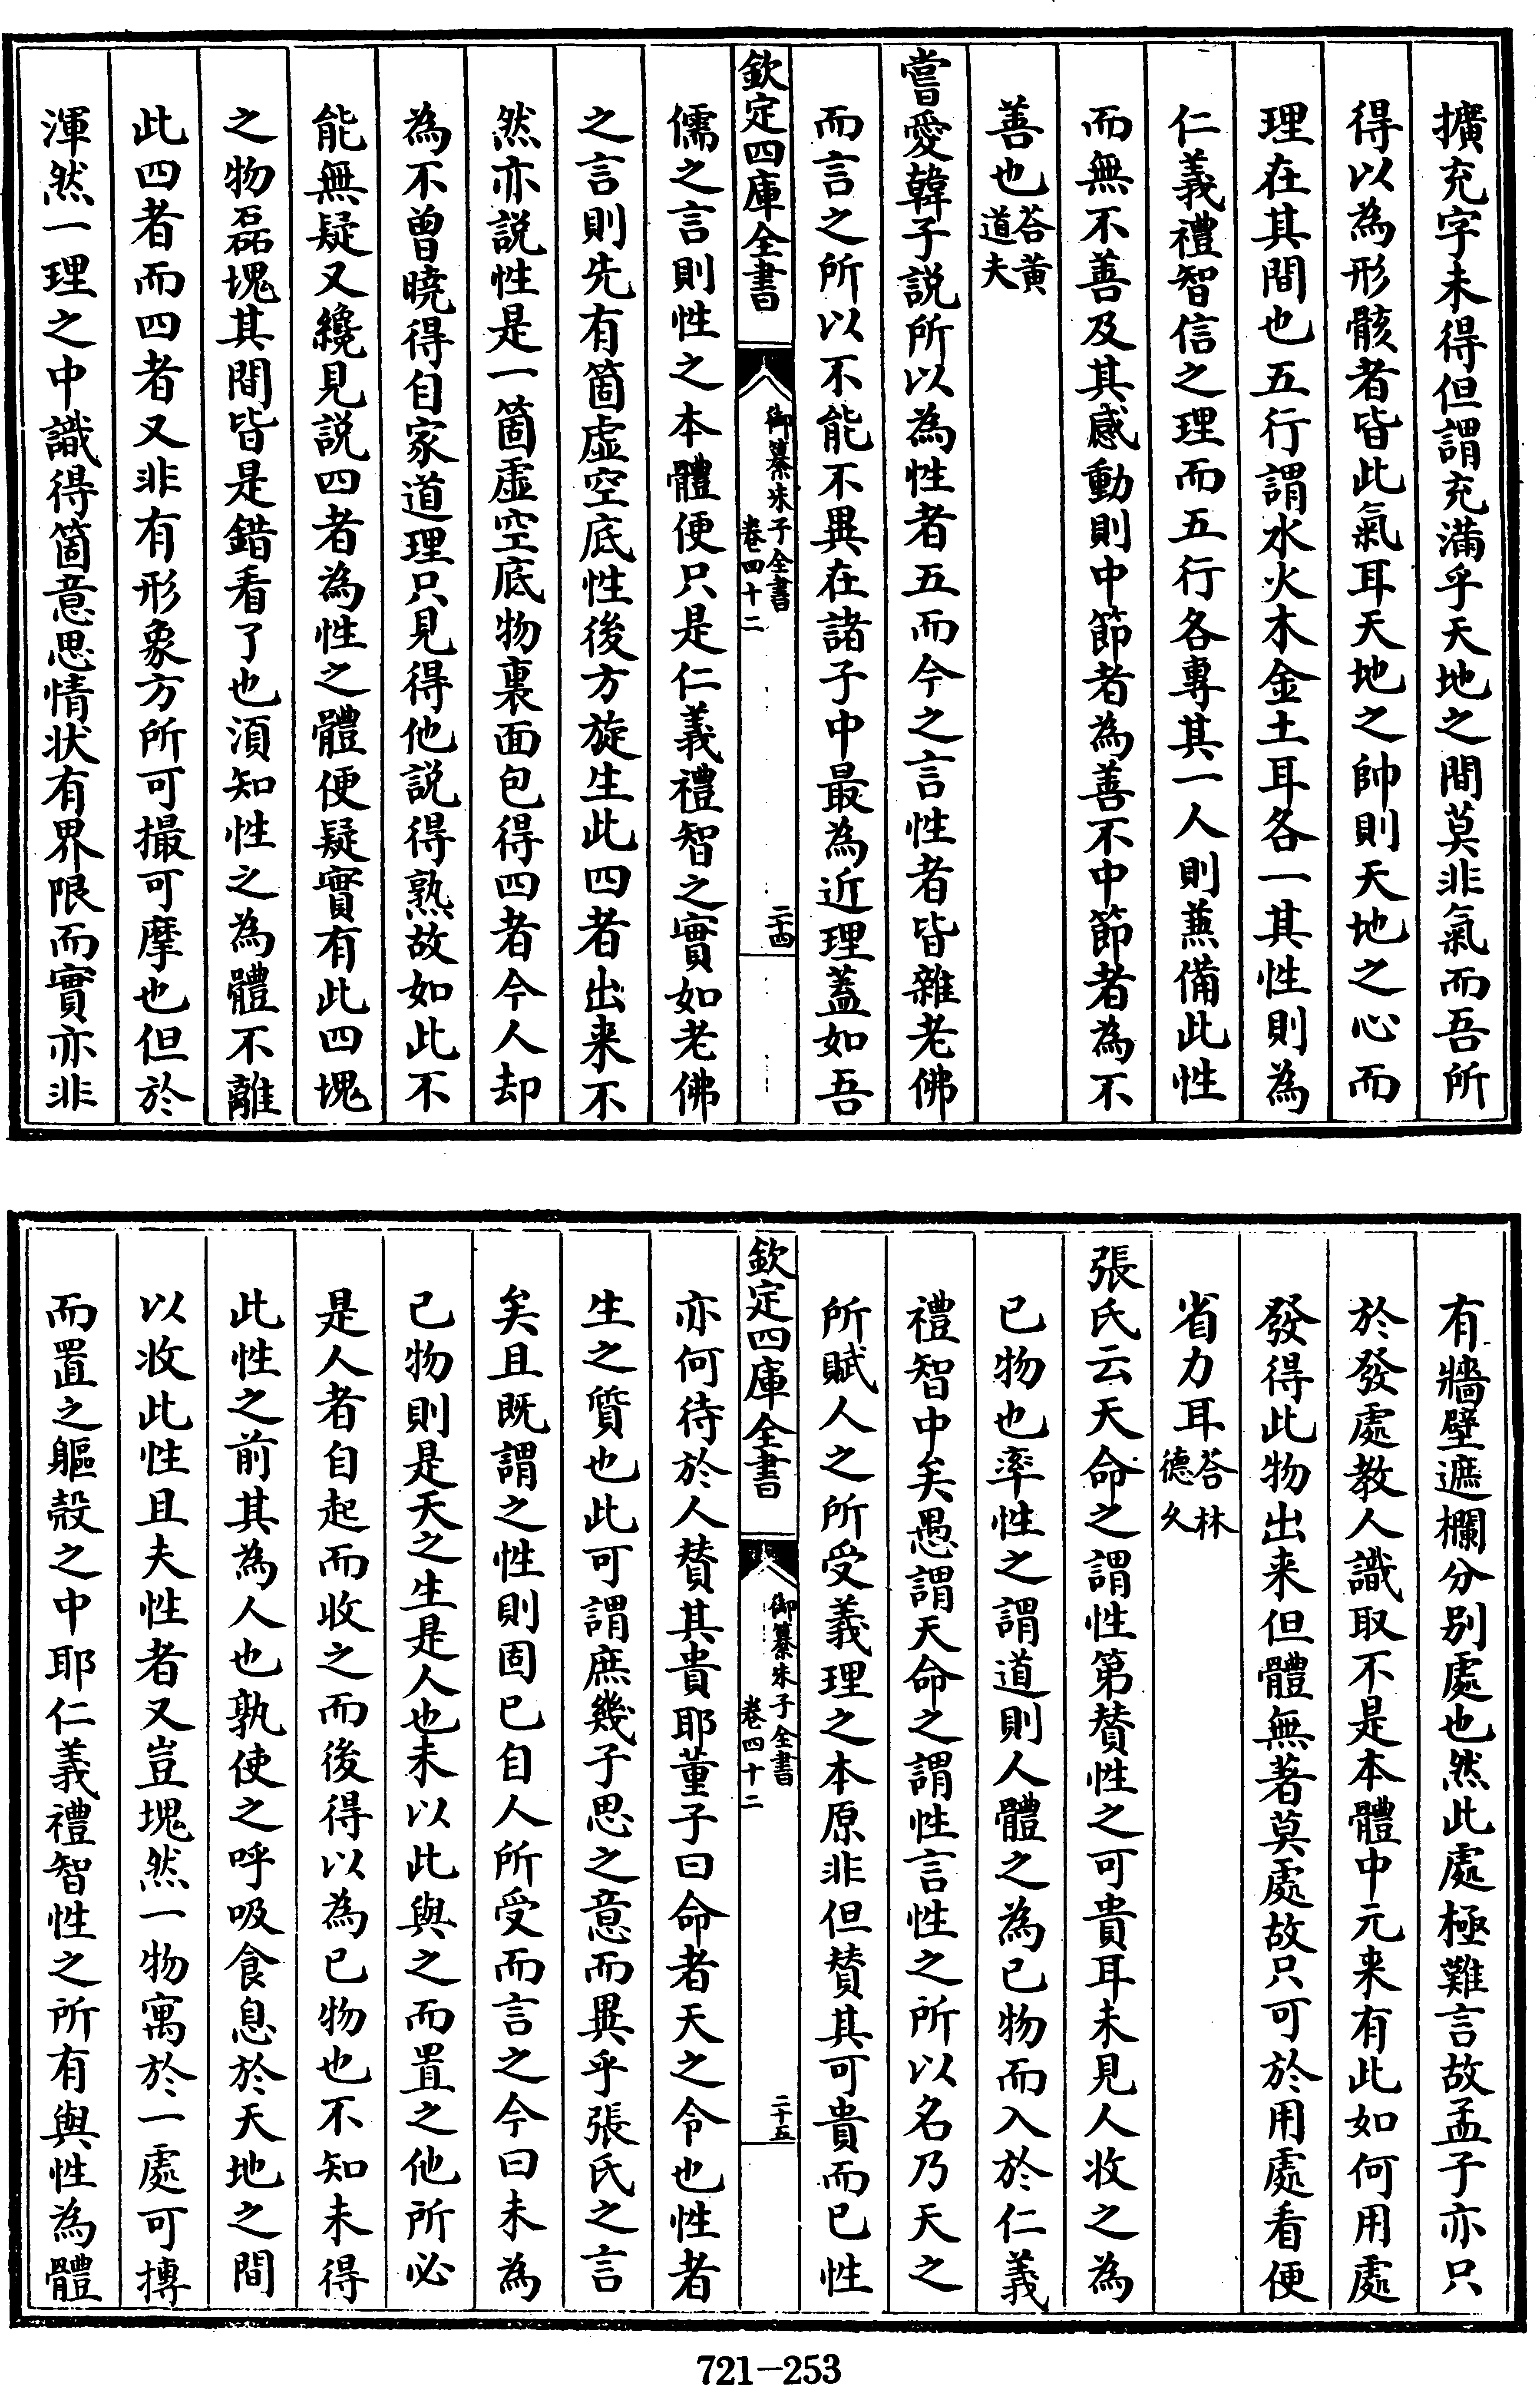 擴充字未得但謂充滿乎天地之間莫非氣而吾所
得以為形骸者皆此氣耳天地之帥則天地之心而
理在其間也五行謂水火木金土耳各一其性則為
仁義禮智信之理而五行各專其一人則蕪備此性
而無不善及其感動則中節者為善不中節者為不
善也荅黃道夫
嘗愛韓子説所以為性者五而今之言性者皆雜老佛
而言之所以不能不異在諸子中最為近理蓋如吾
欽定四庫全書
御纂朱子全書
卷四十二
二十四
儒之言則性之本體便只是仁義禮智之實如老佛
之言則先有箇虛空底性後方旋生此四者出来不
然亦説性是一箇虛空底物裏面包得四者今人却
為不曽曉得自家道理只見得他説得熟故如此不
能無疑又纔見説四者為性之體便疑實有此四塊
之物磊塊其間皆是錯看了也湏知性之為體不離
此四者而四者又非有形象方所可撮可摩也但於
渾然一理之中識得箇意思情状有界限而實亦非
有牆壁遮欄分别處也然此處極難言故孟子亦只
於發處教人識取不是本體中元来有此如何用處
發得此物出来但體無著莫處故只可於用處看便
省力耳荅林德久
張氏云天命之謂性第賛性之可貴耳未見人收之為
已物也率性之謂道則人體之為已物而入於仁義
禮智中矣愚謂天命之謂性言性之所以名乃天之
所賦人之所受義理之本原非但賛其可貴而已性
欽定四庫全書
御纂朱子全書
卷四十二
二十五
亦何待於人賛其貴耶董子曰命者天之令也性者
生之質也此可謂庶幾子思之意而異乎張氏之言
矣且既謂之性則固已自人所受而言之今曰未為
己物則是天之生是人也未以此與之而置之他所必
是人者自起而收之而後得以為已物也不知未得
此性之前其為人也孰使之呼吸食息於天地之間
以收此性且夫性者又豈塊然一物寓於一處可摶
而置之軀殻之中耶仁義禮智性之所有與性為體
721-253